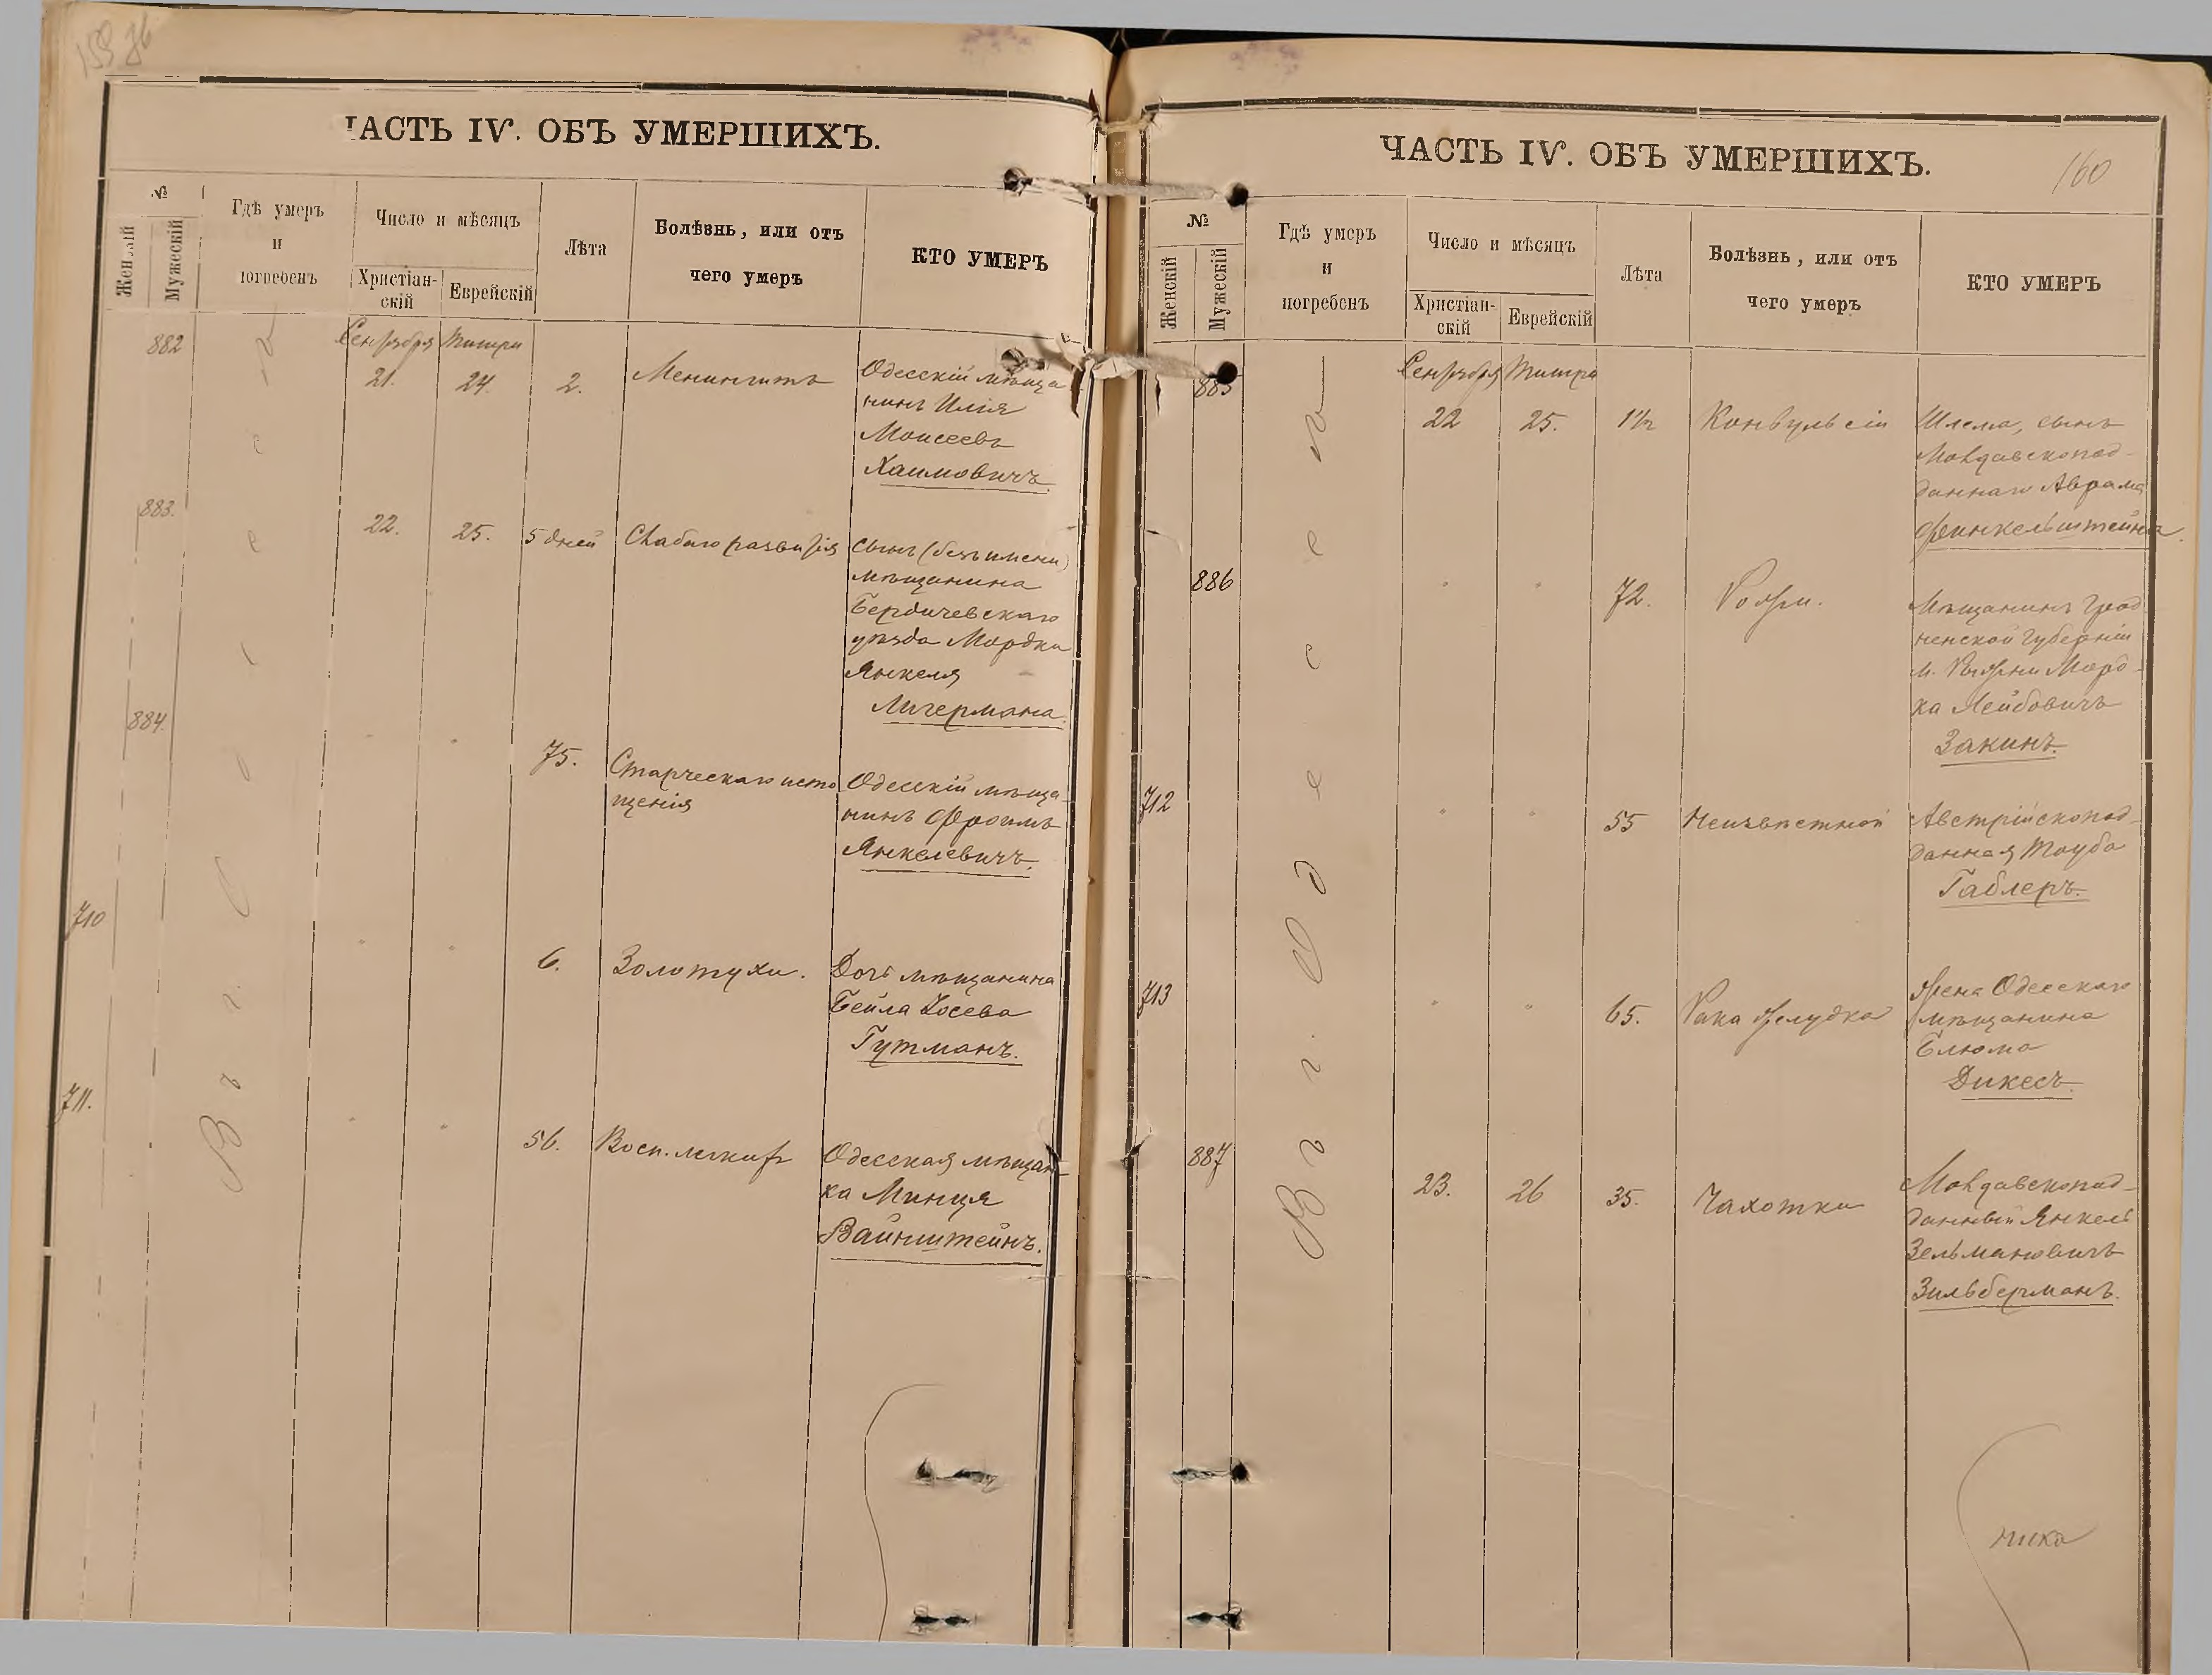 ЧАСТЬ IV. ОБЪ УМЕРШИХЪ.
№
Женскій
Мужескій
Гдѣ умеръ
и
погребенъ
Число и мѣсяцъ
Христіан-
скій
Еврейскій
Лѣта
Болѣзнь, или отъ
чего умеръ
КТО УМЕРЪ
Въ г. Одессѣ
882
Сентября Тишри
21. 24. 2. Менингитъ
Одесскій мѣща
нинъ Илія
Моисеевъ
Хаимовичъ.
883.
22. 25. 5 дней Слабаго развитія
сынъ (безъ имени)
мѣщанина
Бердичевскаго
уѣзда Мордки
Янкеля
Лигермана.
884.
" " 75. Старческаго исто
щенія
Одесскій мѣща-
нинъ Фроимъ
Янкелевичъ.
710
" " 6. Золотухи.
Дочь мѣщанина
Бейла Іосева
Гутманъ.
711.
" " 56. Восп. легкихъ
Одесская мѣщан-
ка Минця
Вайнштейнъ.
ЧАСТЬ IV. ОБЪ УМЕРШИХЪ.
160
№
Женскій
Мужескій
Гдѣ умеръ
и
погребенъ
Число и мѣсяцъ
Христіан-
скій
Еврейскій
Лѣта
Болѣзнь, или отъ
чего умеръ
КТО УМЕРЪ
Въ г. Одессѣ
885
Сентября Тишри
22 25. 1½ Конвульсіи
Шлема, сынъ
Молдавскопод-
даннаго Аврама
Финкельштейна.
886
" " 72. Рожи.
Мѣщанинъ Грод
ненской губерніи
м. Рожни Морд-
ка Лейбовичъ
Закинъ.
712
" " 55 Неизвѣстной
Австрійскопод-
данная Тауба
Габлеръ.
713
" " 65. Рака желудка
Жена Одесскаго
мѣщанина
Блюма
Дикесъ.
887
23. 26 35. Чахотки
Молдавскопод-
данный Янкель
Зельмановичъ
Зильберманъ.
ника